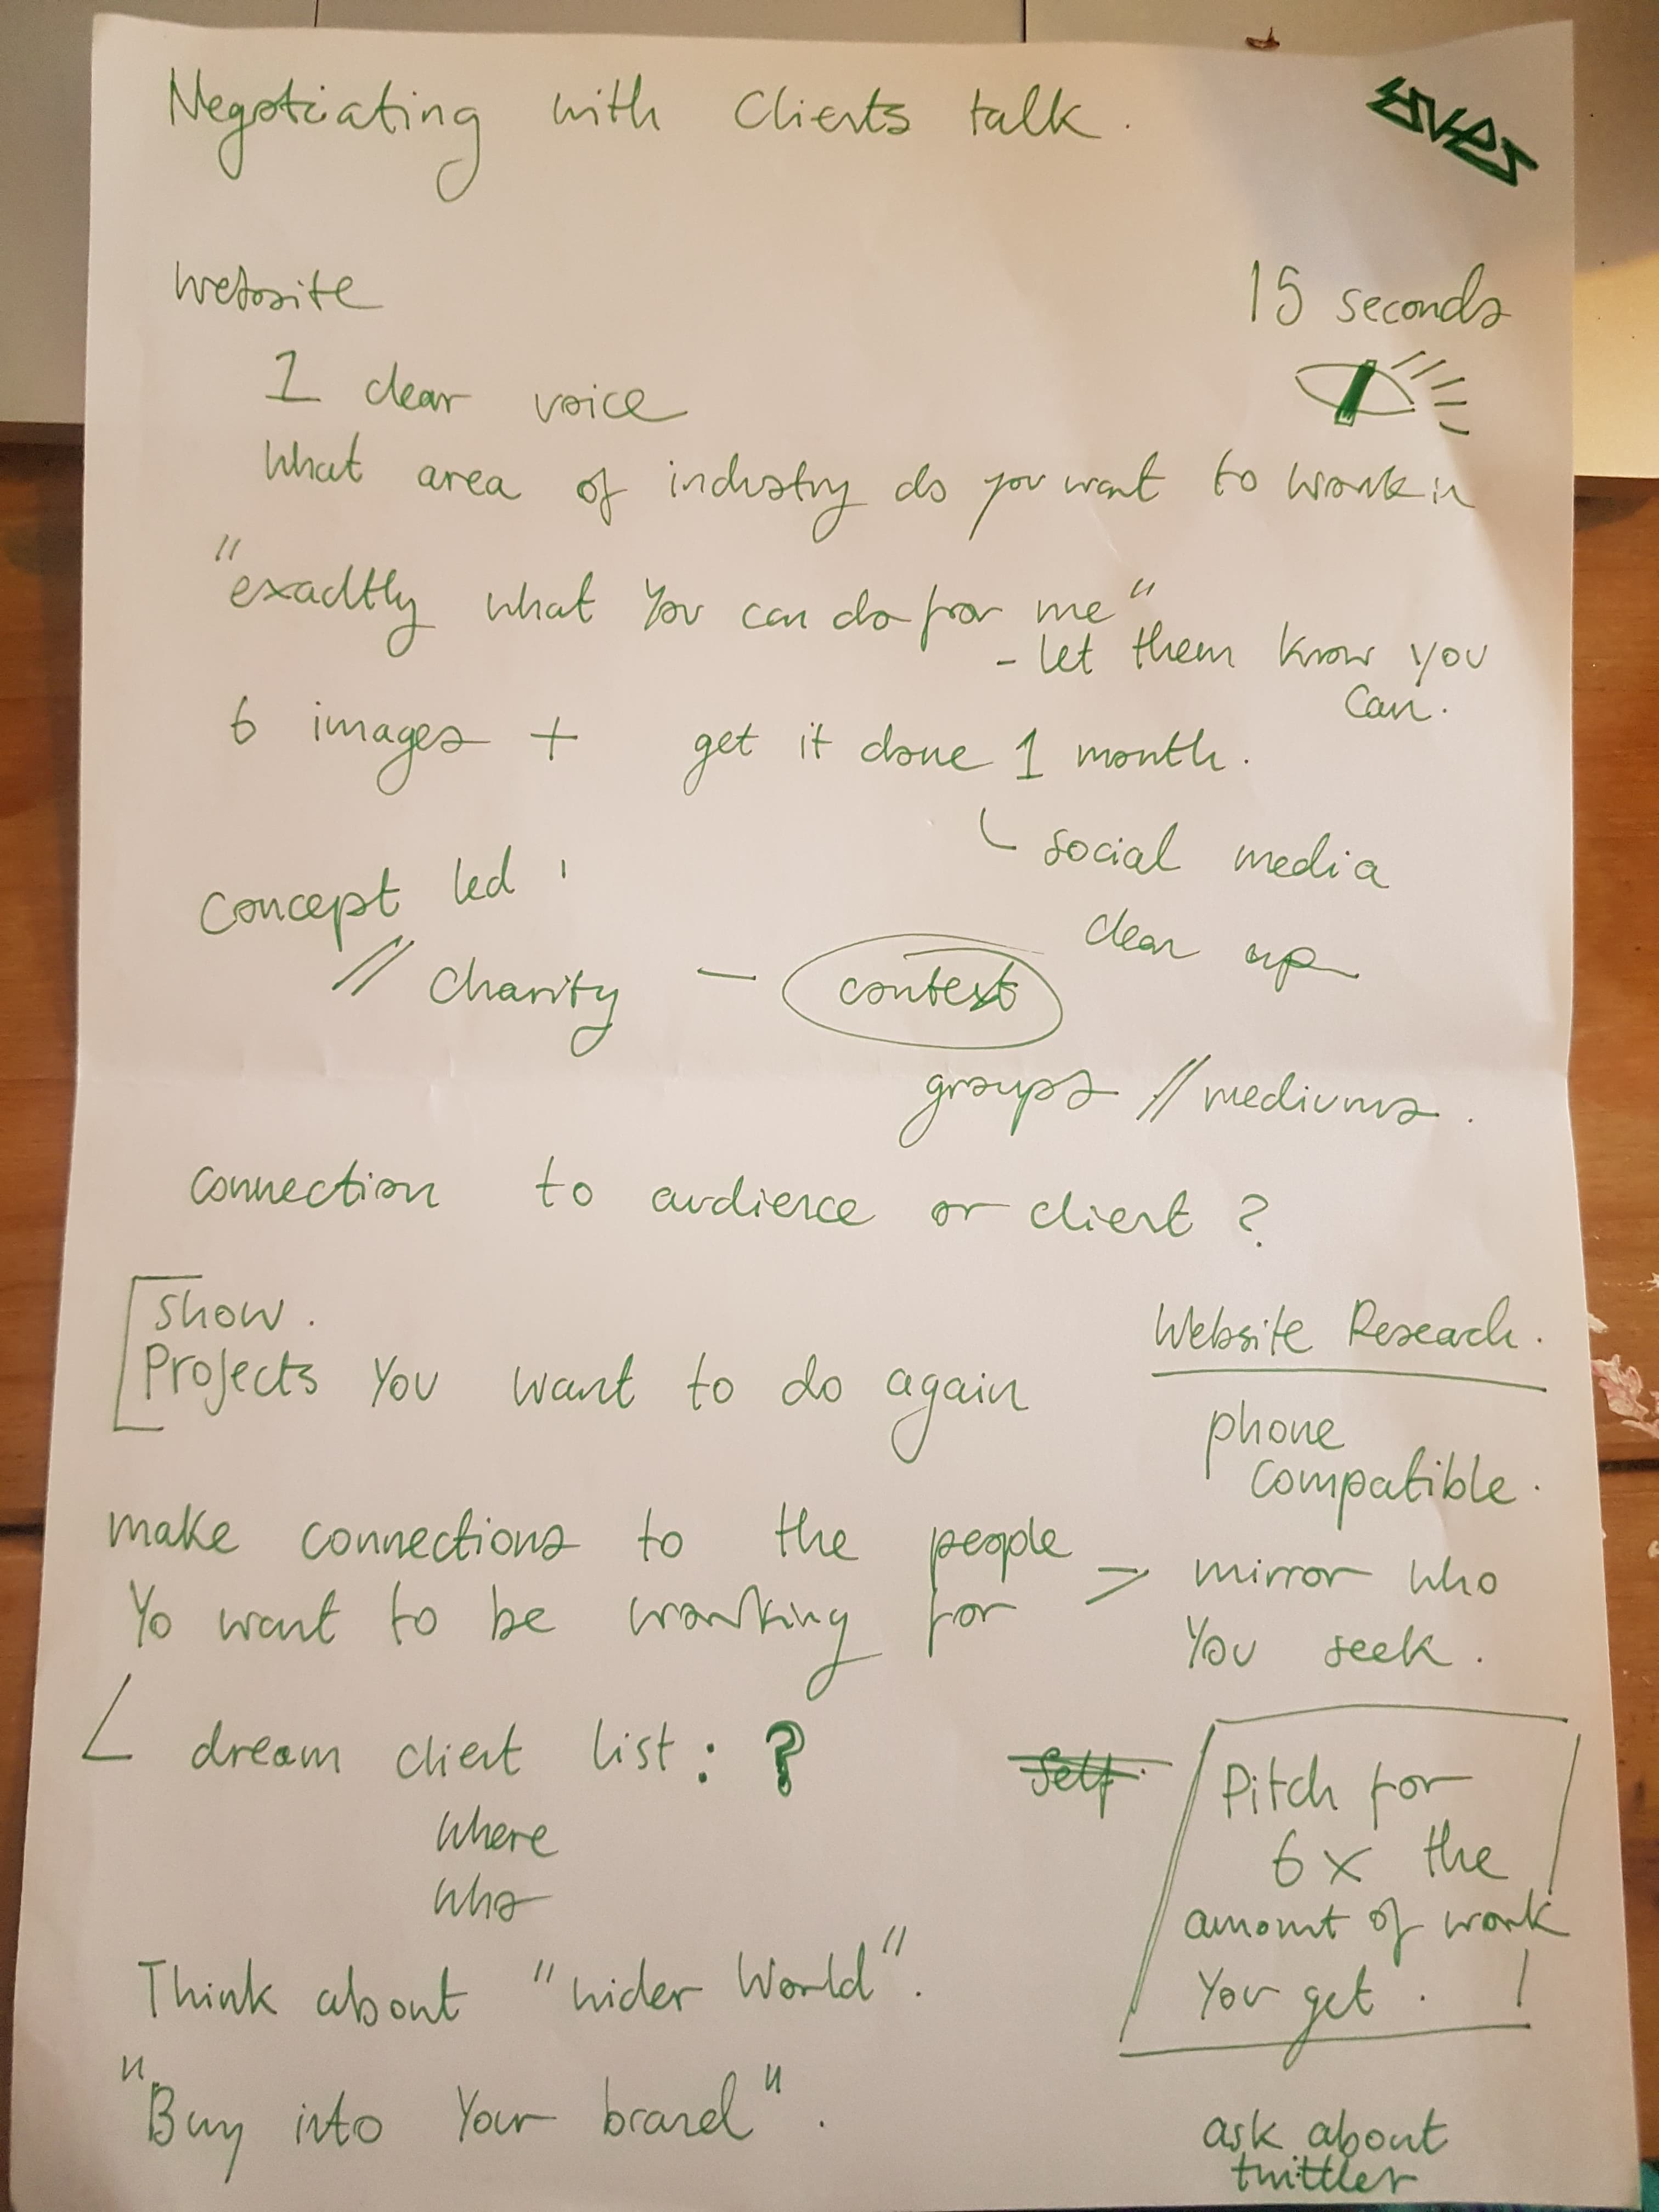 Negotiating with Clients talk.
website
15 seconds
1 clear voice
What area of industry do you want to work in
"exactly what You can do for me"
- let them know you
can.
6 images + get it done 1 month.
social media
clear up
concept led
// charity - context
groups // mediums.
connection to audience or client ?
show.
Projects You want to do again
Website Reseach.
phone
compatible.
make connections to the people
Yo want to be working for
> mirror who
You seek.
dream client list : ?
where
who
Self.
Pitch for
6 x the
amount of work
You get.
Think about "wider World".
"Buy into Your brand".
ask about
twittler